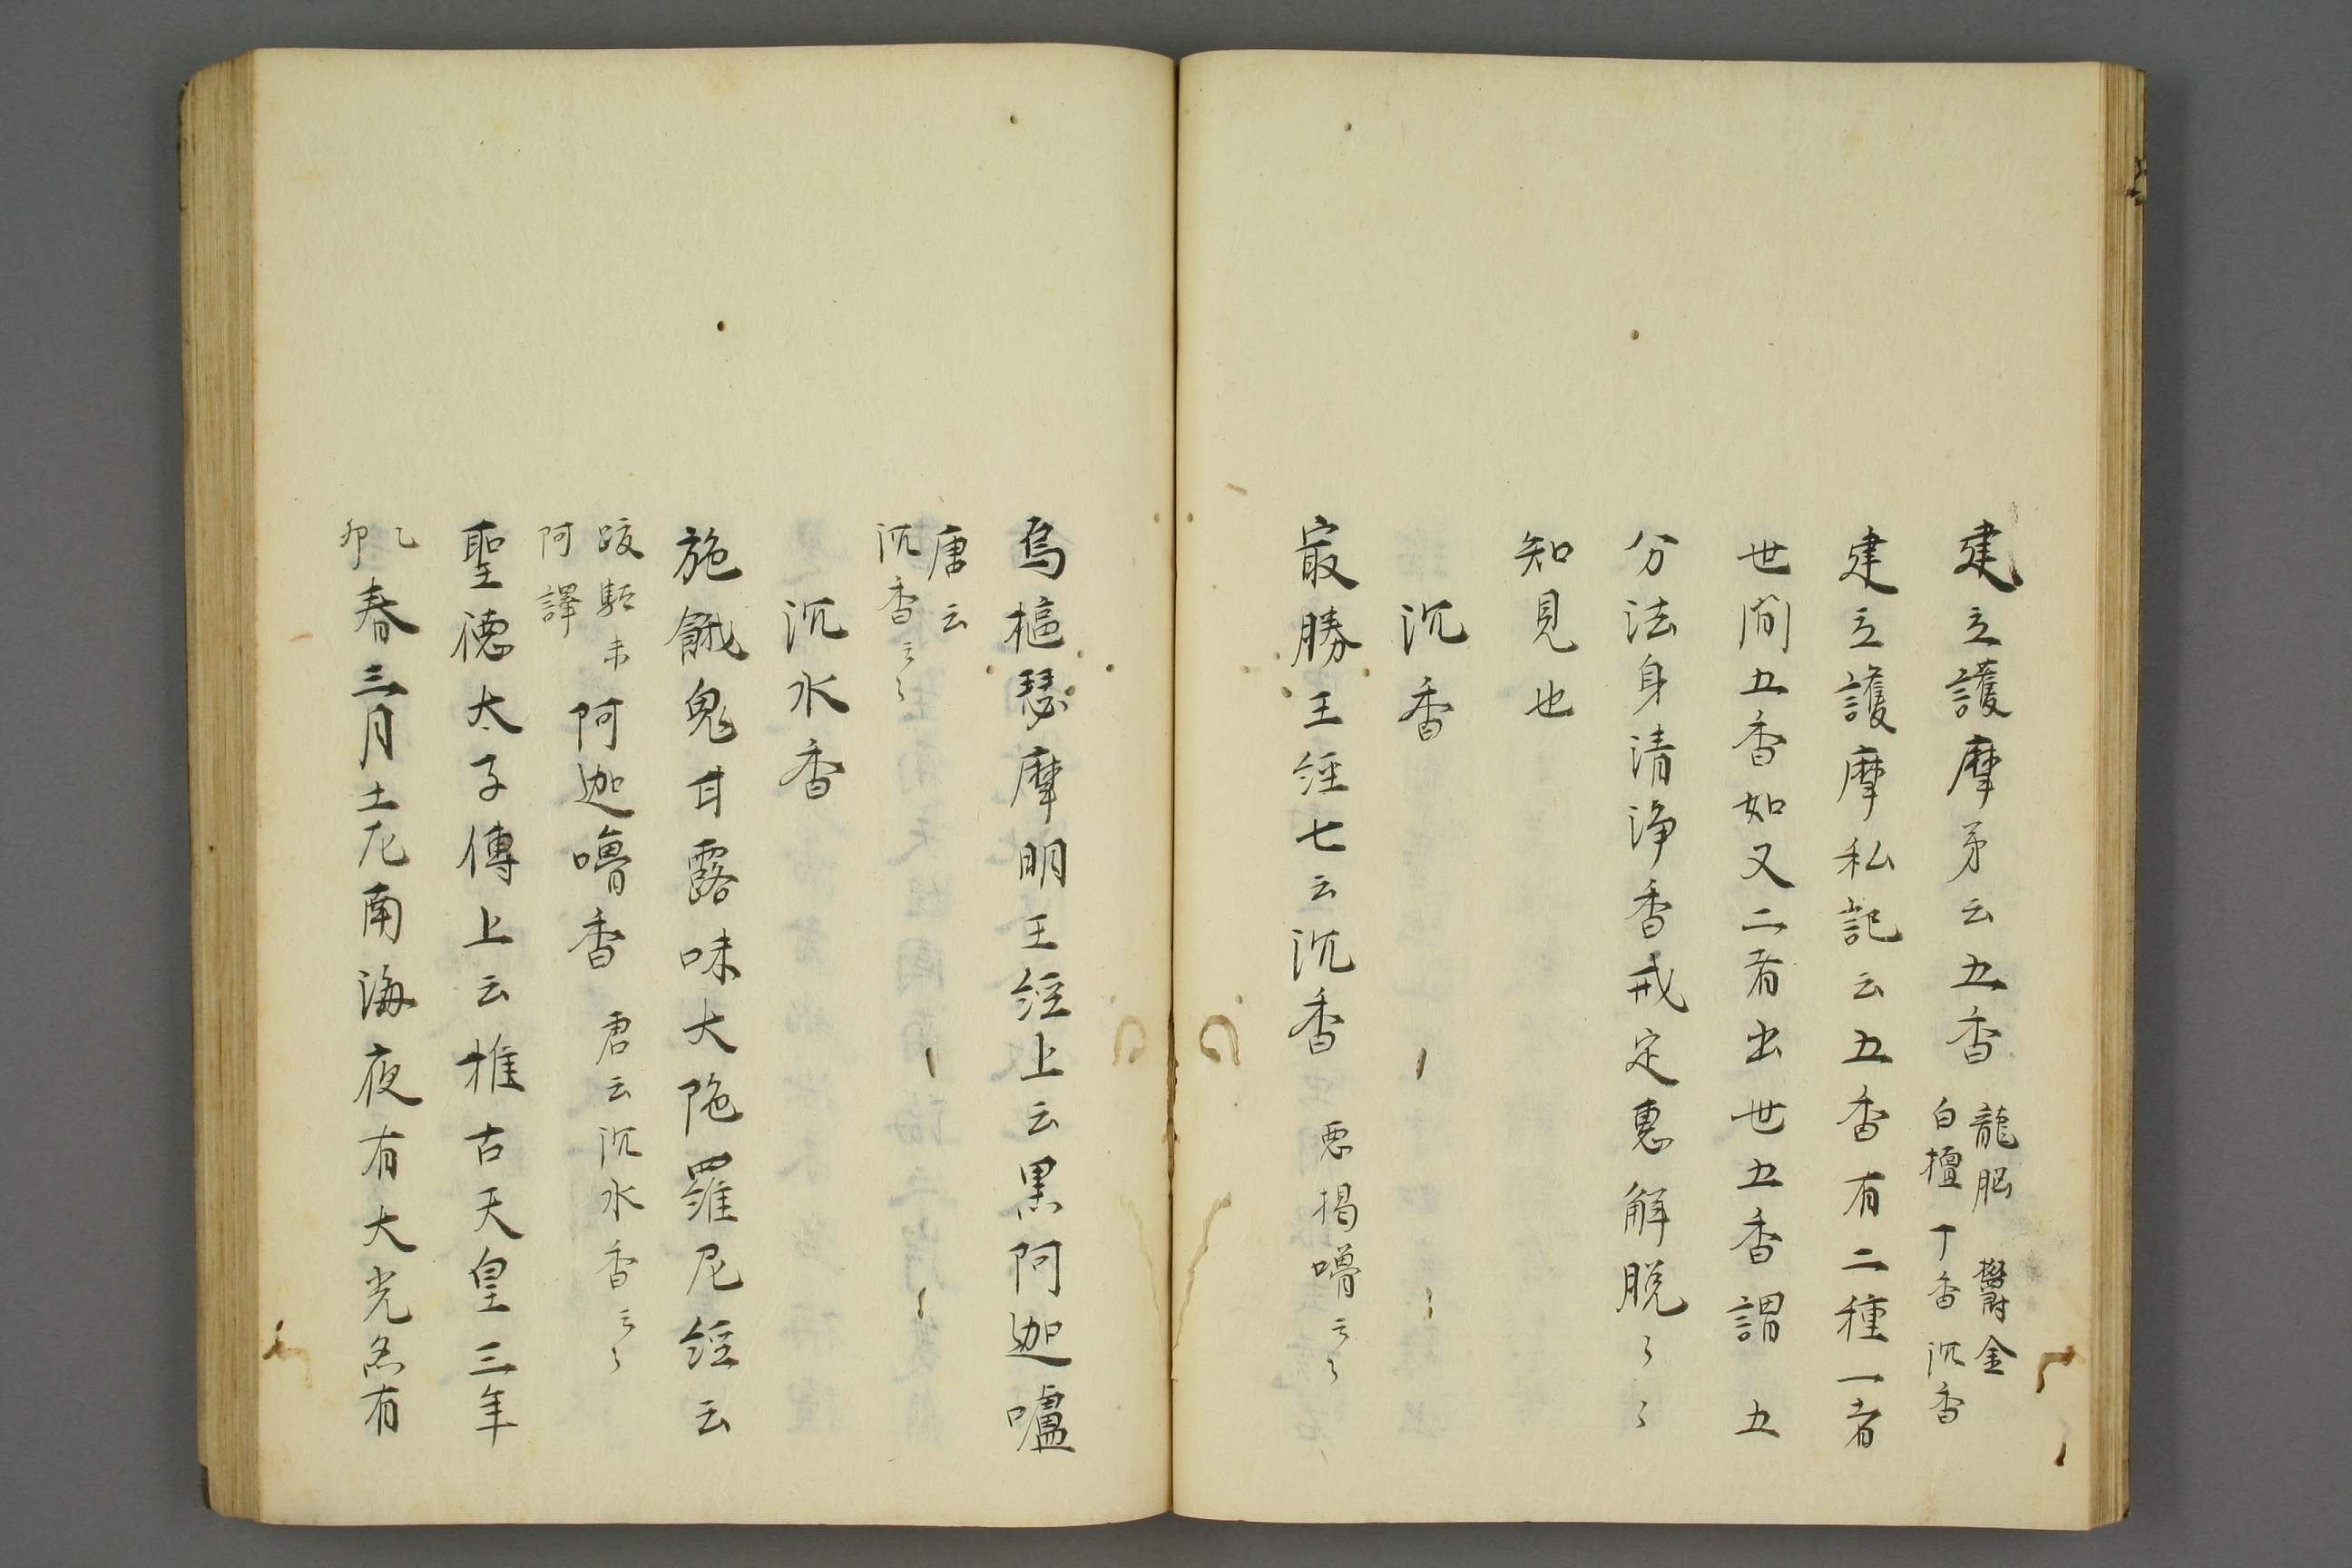 建立護摩苐云五香 龍脳 欝金 白檀 丁香 沉香
建立護摩私記云五香有二種一者
世間五香如又二者出世五香謂 五
分法身清浄香戒定惠解脱〻〻
知見也
沉香
冣勝王経七云沉香 悪揭嚕云〻
烏樞瑟摩明王経上云黒阿迦嚧
唐云
沉香云〻
沉水香
施餓鬼甘露味大陁羅尼経云
跋駈未
阿譯
阿迦嚕香 唐云沉水香云〻
聖徳太子傳上云推古天皇三年
乙卯春三月土左南海夜有大光亦有